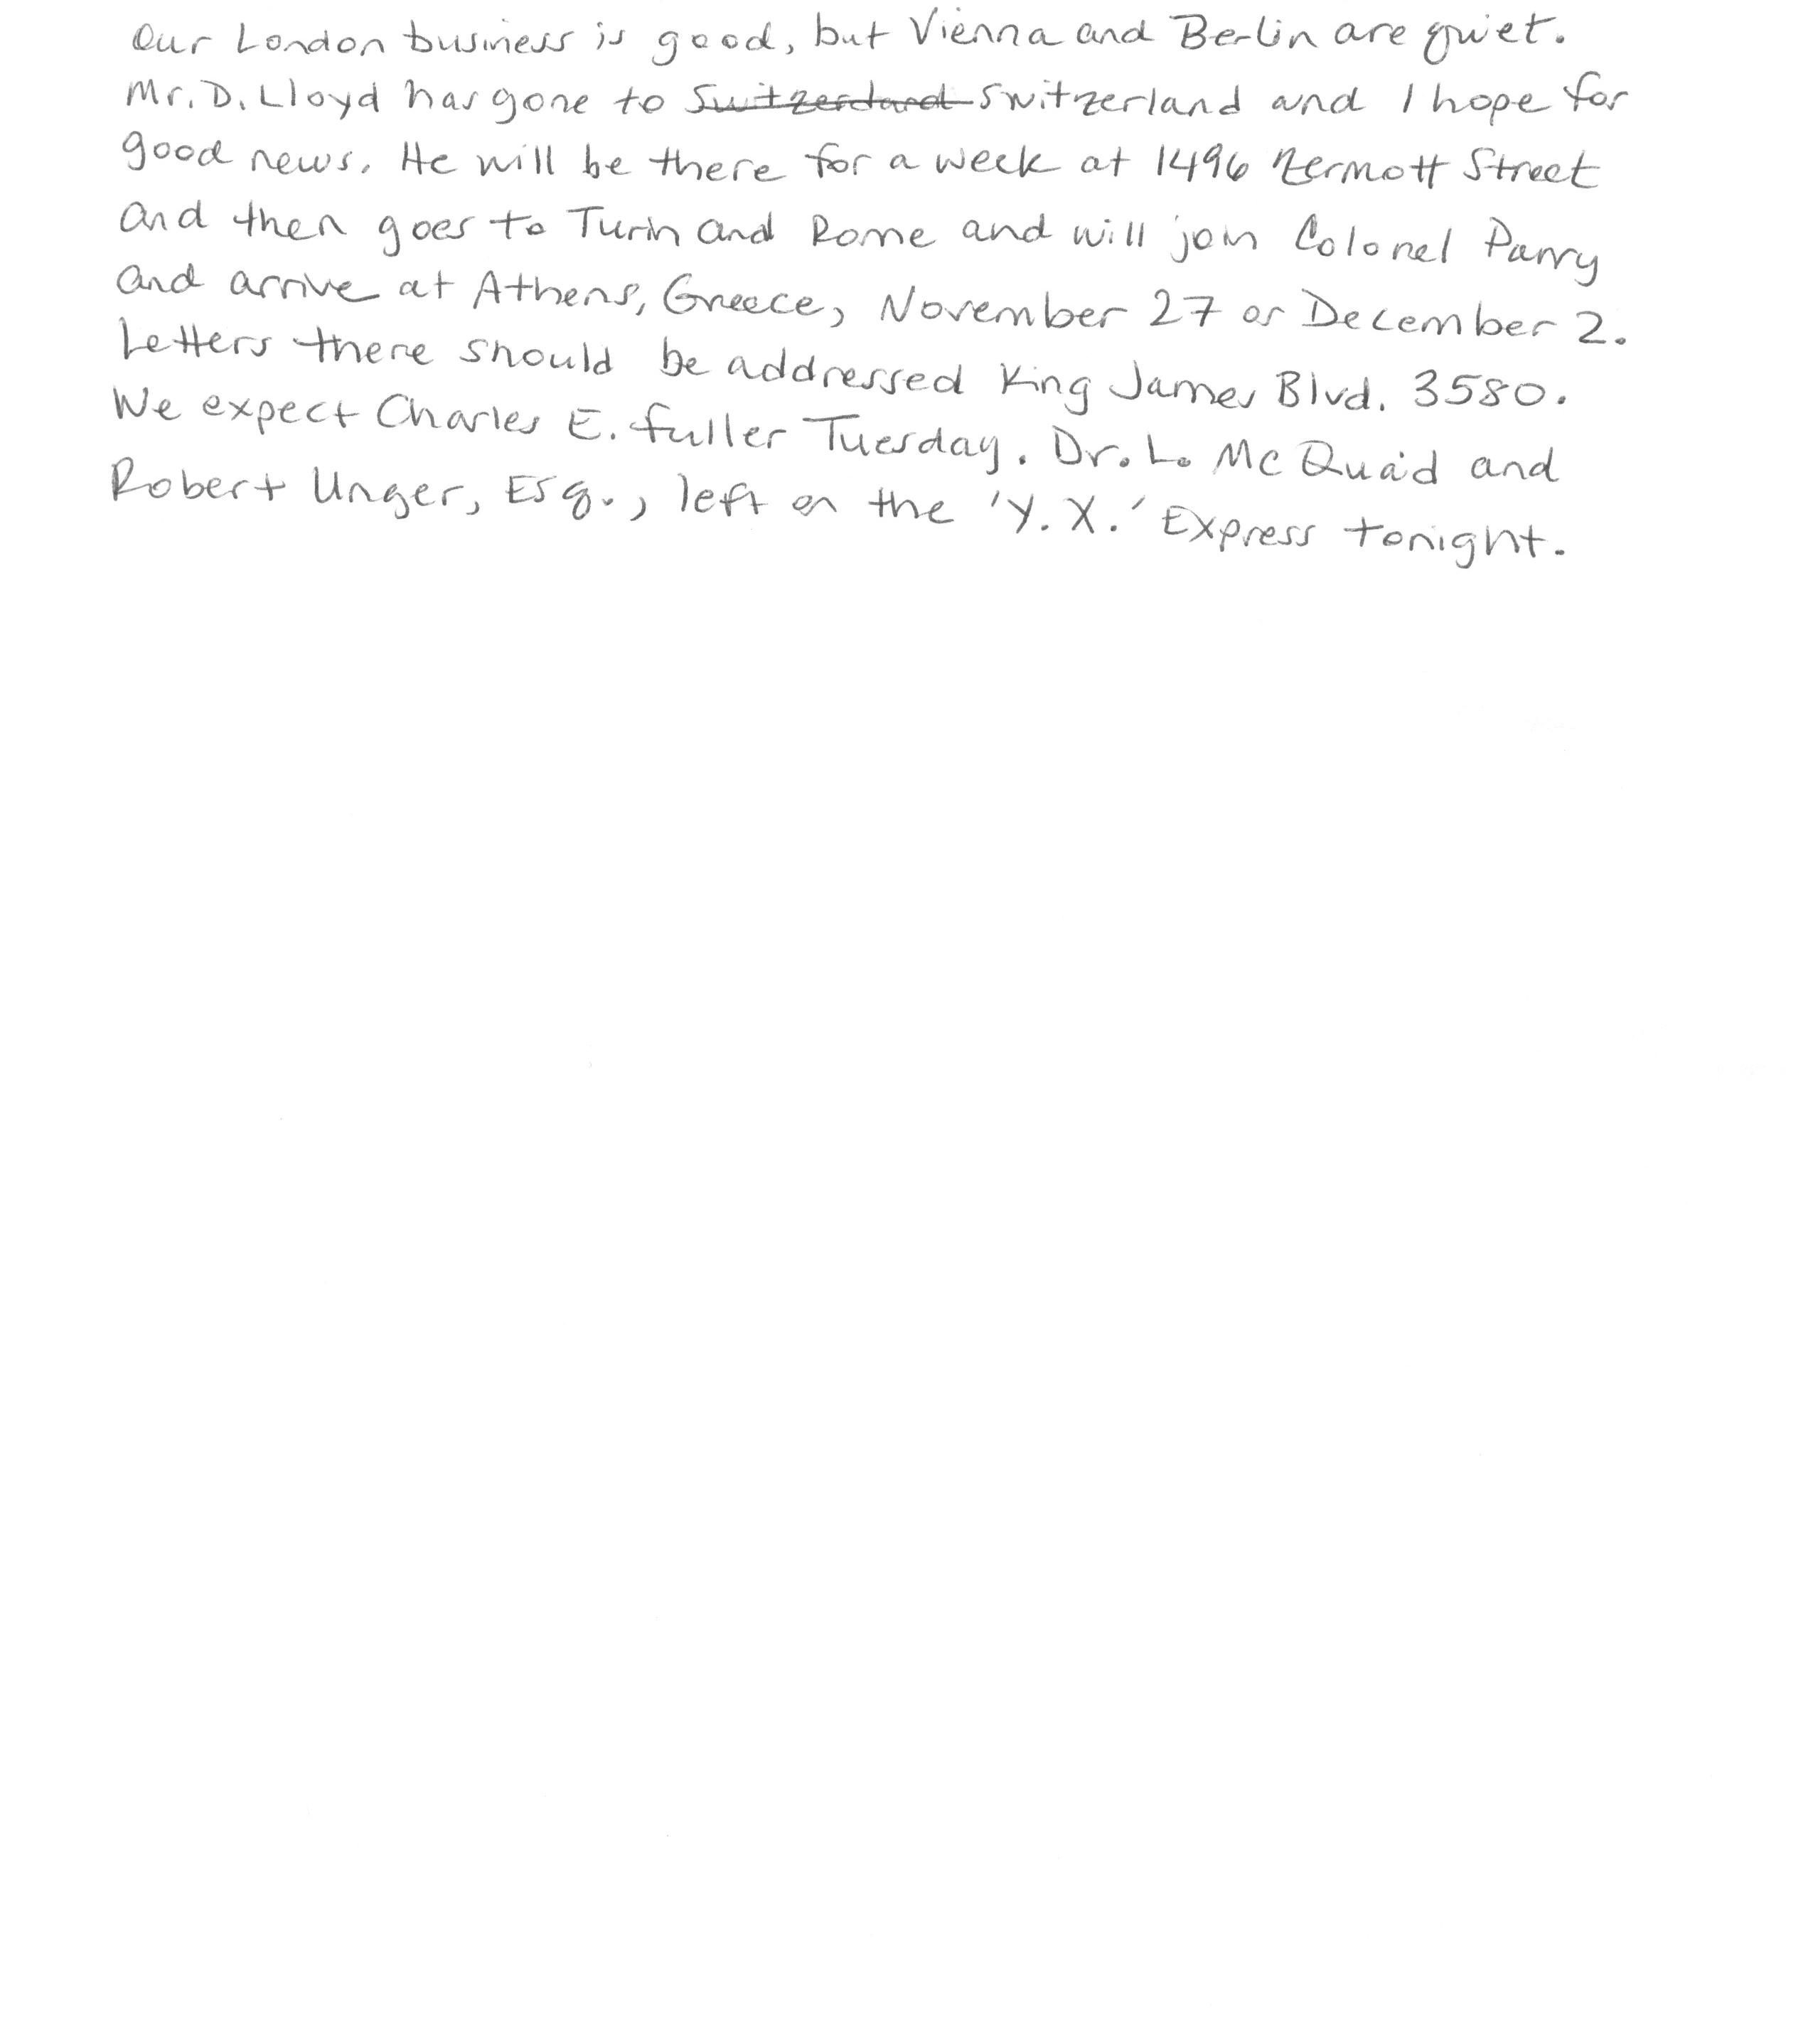 Our London business is good, but Vienna and Berlin are quiet.
Mr. D. Lloyd has gone to Switzerland Switzerland and I hope for
good news. He will be there for a week at 1496 Zermott Street
and then goes to Turin and Rome and will join Colonel Parry
and arrive at Athens, Greece, November 27 or December 2.
Letters there should be addressed King James Blvd. 3580.
We expect Charles E. Fuller Tuesday. Dr. L. McQuaid and
Robert Unger, Esq., left on the 'Y. X.' Express tonight.